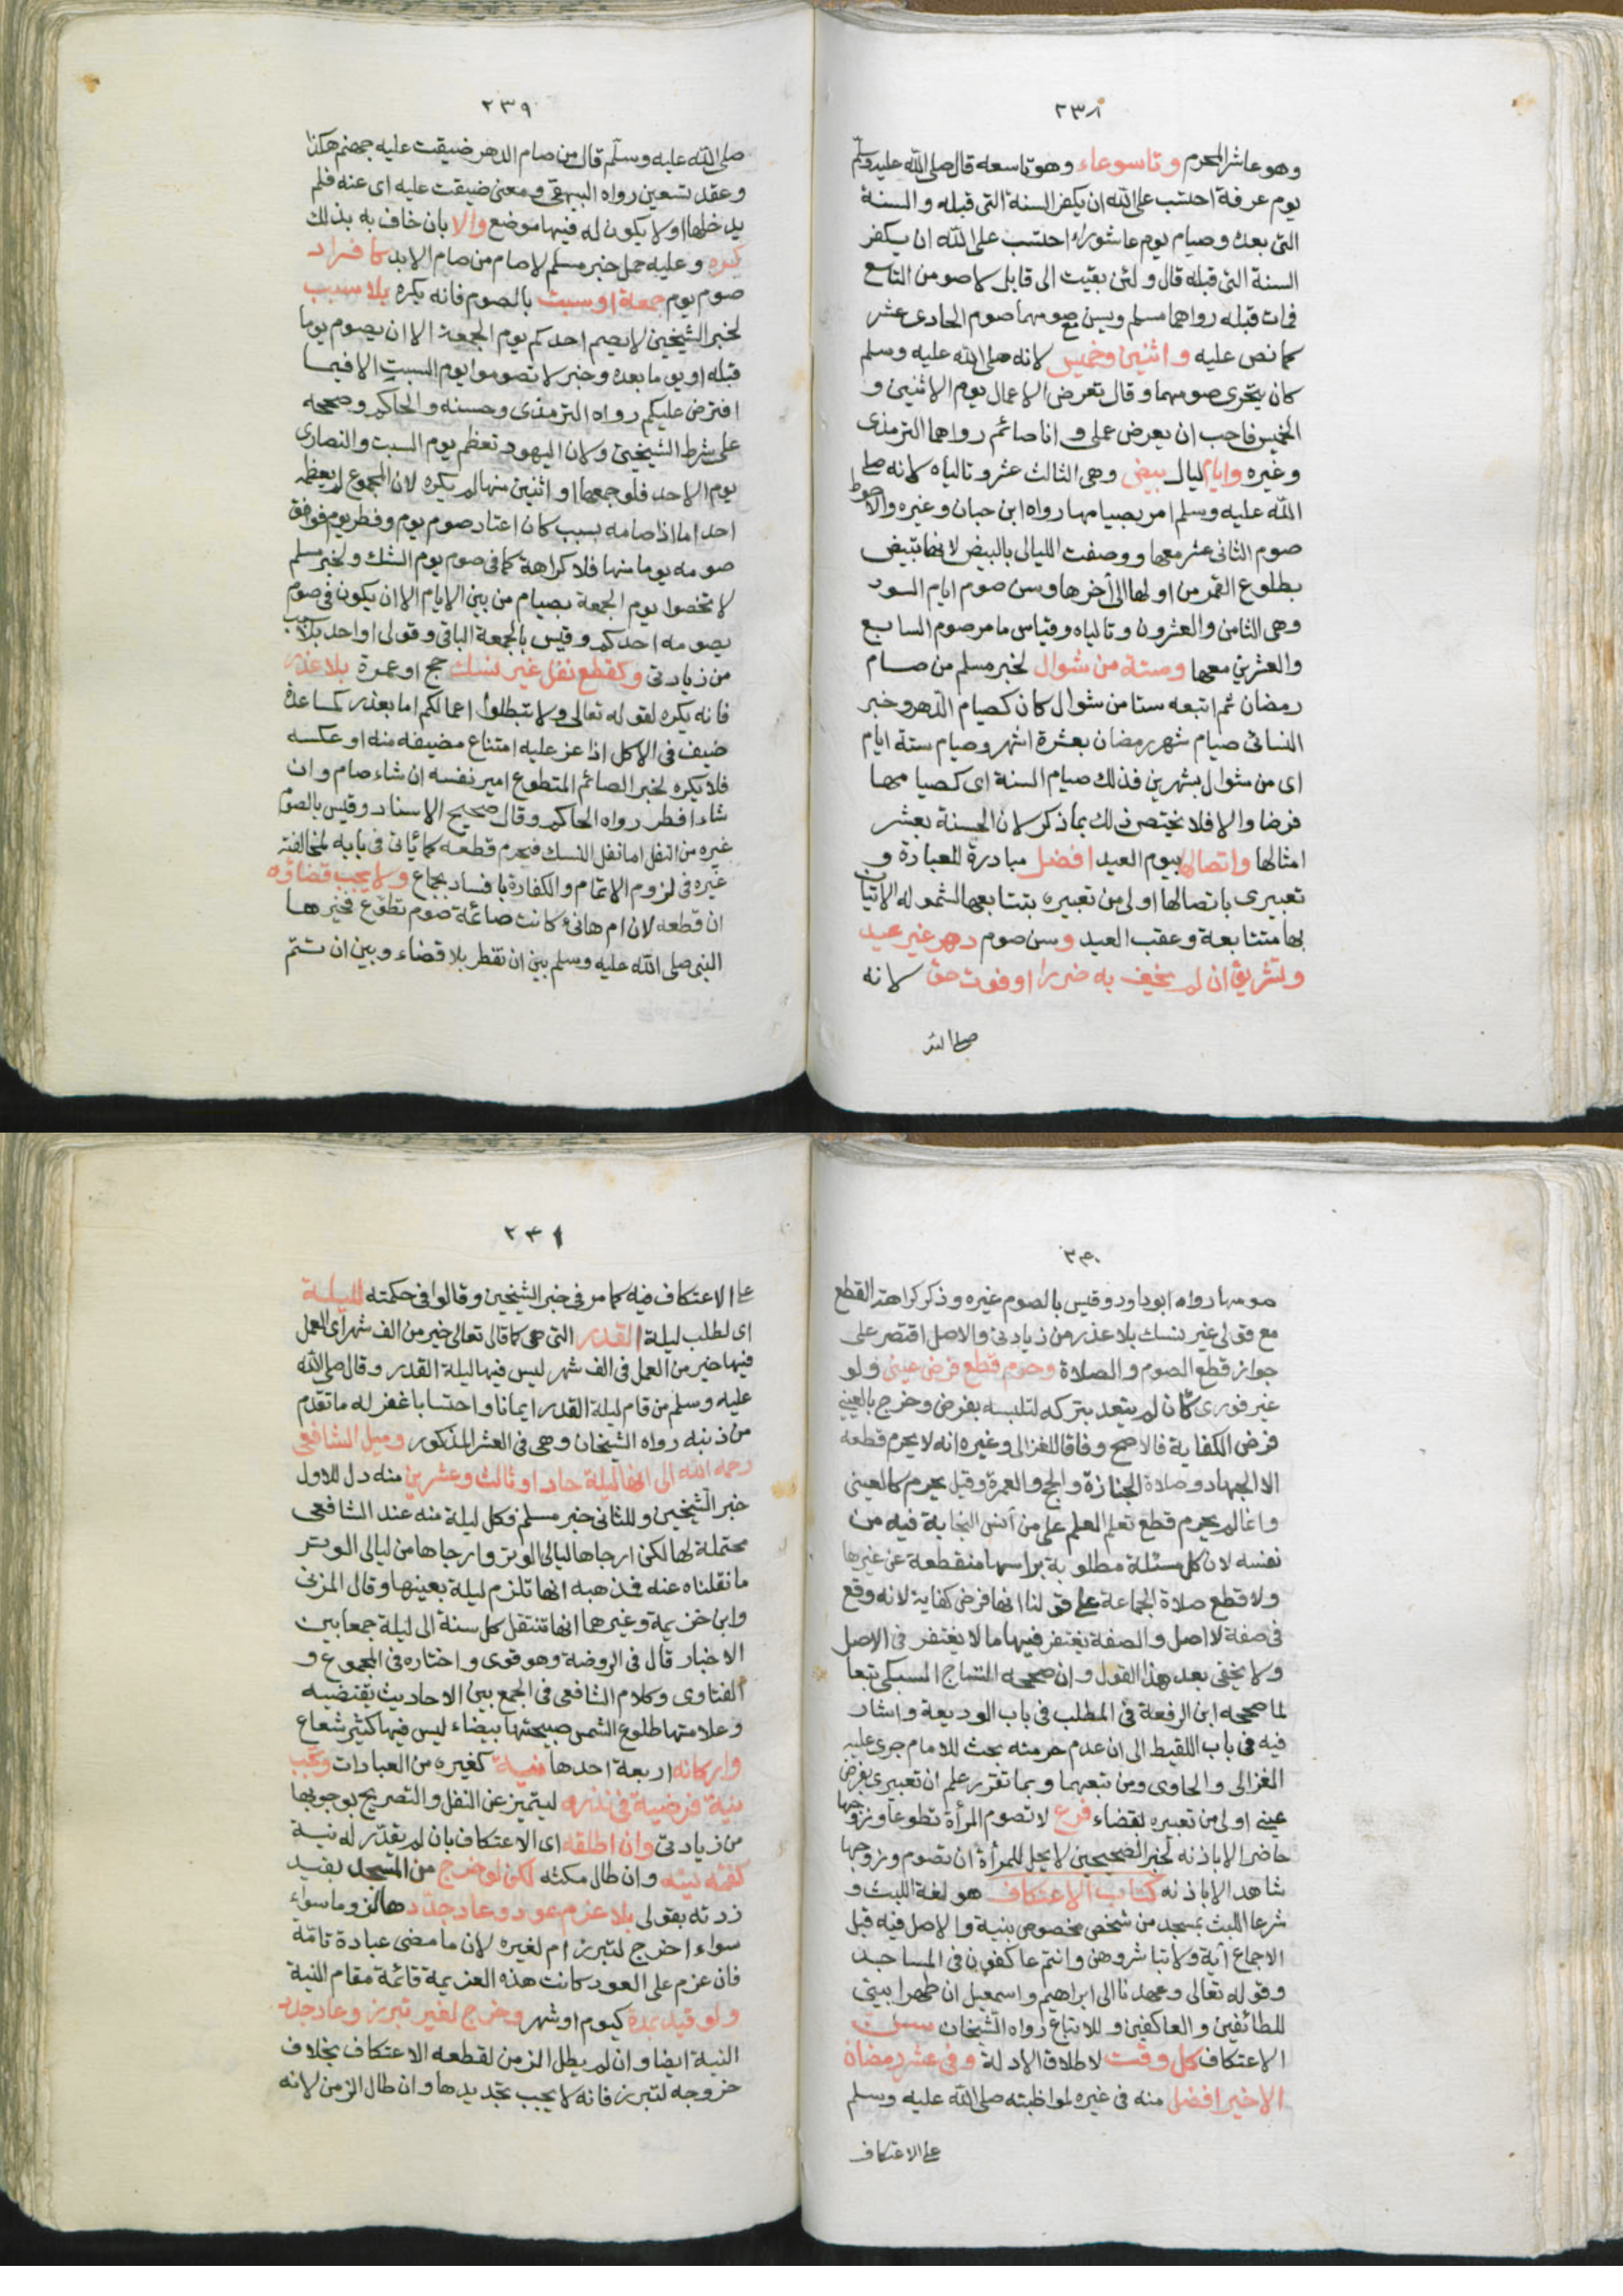 ٢٣٨
وهو عاشر المحرم وتاسوعاء وهو تاسعه قال صلى الله عليه وسلم
يوم عرفة احتسب على الله ان يكفر السنة التى قبله والسنة
التى بعده وصيام يوم عاشوراء احتسب على الله ان يكفر
السنة التى قبله قال ولئن بقيت الى قابل لاصومن التاسع
فمات قبله رواهما مسلم ويسن مع صومهما صوم الحادى عشر
كما نص عليه واثنين وخميس لانه صلى الله عليه وسلم
كان يتحرى صومهما وقال تعرض الاعمال يوم الاثنين و
الخميس فاحب ان يعرض عملى وانا صائم رواهما الترمذى
وغيره وايام ليال بيض وهى الثالث عشر وتالياه لانه صلى
الله عليه وسلم امر بصيامها رواه ابن حبان وغيره والاحوط
صوم الثانى عشر معها ووصفت الليالى بالبيض لانها تبيض
بطلوع القمر من اولها الى أخرها وسن صوم ايام السود
وهى الثامن والعشرون وتالياه وقياس ما مر صوم السابع
والعشرين معها وستة من شوال لخبر مسلم من صام
رمضان ثم اتبعه ستا من شوال كان كصيام الدهر وخبر
النسائى صيام شهر رمضان بعشرة اشهر وصيام ستة ايام
اى من شوال بشهرين فذلك صيام السنة اى كصيامها
فرضا والا فلا يختص ذلك بما ذكر لان الحسنة بعشر
امثالها واتصالها بيوم العيد افضل مبادرة للعبادة و
تعبيرى باتصالها اولى من تعبيره بتتابعها لشموله الاتيان
بها متتابعة وعقب العيد وسن صوم دهر غير عيد
وتشريق ان لم يخف به ضررا او فوت حق لانه
صلى الله
٢٣٩
صلى الله عليه وسلم قال من صام الدهر ضيقت عليه جهنم هكذا
وعقد تسعين رواه البيهقى ومعنى ضيقت عليه اى عنه فلم
يدخلها اولا يكون له فيها موضع والا بان خاف به بذلك
كره وعليه حمل خبر مسلم لاصام من صام الابد كافراد
صوم يوم جمعة او سبت بالصوم فانه يكره بلا سبب
لخبر الشيخين لا يصم احدكم يوم الجمعة الا ان يصوم يوما
قبله او يوما بعده وخبر لا تصوموا يوم السبت الا فيما
افترض عليكم رواه الترمذى وحسنه والحاكم وصححه
على شرط الشيخين ولان اليهود تعظم يوم السبت والنصارى
يوم الاحد فلو جمعها او اثنين منها لم يكره لان المجموع لم يعظمه
احد اما اذا صامه بسبب كان اعتاد صوم يوم وفطر يوم فوافق
صومه يوما منها فلا كراهة كما فى صوم يوم الشك ولخبر مسلم
لا تخصوا يوم الجمعة بصيام من بين الايام الا ان يكون فى صوم
يصومه احدكم وقيس بالجمعة الباقى وقولى او احد بلا سبب
من زيادتى وكقطع نفل غير نسك حج او عمرة بلا عذر
فانه يكره لقوله تعالى ولا تبطلوا اعمالكم اما بعذر كمساعدة
ضيف فى الاكل اذا عز عليه امتناع مضيفه منه او عكسه
فلا يكره لخبر الصائم المتطوع امير نفسه ان شاء صام وان
شاء افطر رواه الحاكم وقال صحيح الاسناد وقيس بالصوم
غيره من النفل اما نفل النسك فيحرم قطعه كما يأتى فى بابه لمخالفته
غيره فى لزوم الاتمام والكفارة بافساد بجماع ولا يجب قضاؤه
ان قطعه لان ام هانئ كانت صائمة صوم تطوع فخيرها
النبى صلى الله عليه وسلم بين ان تفطر بلا قضاء وبين ان تتم
٢٤٠
صومها رواه ابو داود وقيس بالصوم غيره وذكر كراهة القطع
مع قولى غير نسك بلا عذر من زيادتى والاصل اقتصر على
جواز قطع الصوم والصلاة وحرم قطع فرض عينى ولو
غير فورى كان لم يتعد بتركه لتلبسه بفرض وخرج بالعينى
فرض الكفاية فالاصح وفاقا للغزالى وغيره انه لا يحرم قطعه
الا الجهاد وصلاة الجنازة والحج والعمرة وقيل يحرم كالعينى
وانما لم يحرم قطع تعلم العلم على من أنس النجابة فيه من
نفسه لان كل مسئلة مطلوبة براسها منقطعة عن غيرها
ولا قطع صلاة الجماعة على قولنا انها فرض كفاية لانه وقع
فى صفة لا اصل والصفة يغتفر فيها ما لا يغتفر فى الاصل
ولا يخفى بعد هذا القول وان صححه التاج السبكى تبعا
لما صححه ابن الرفعة فى المطلب فى باب الوديعة واشار
فيه فى باب اللقيط الى ان عدم حرمته بحث للامام جرى عليه
الغزالى والحاوى ومن تبعهما وبما تقرر علم ان تعبيرى بفرض
عينى اولى من تعبيره بقضاء فرع لا تصوم المرأة تطوعا وزوجها
حاضر الا باذنه لخبر الصحيحين لا يحل للمرأة ان تصوم وزوجها
شاهد الا باذنه كتاب الاعتكاف هو لغة اللبث و
شرعا اللبث بمسجد من شخص مخصوص بنية والاصل فيه قبل
الاجماع آية ولا تباشروهن وانتم عاكفون فى المساجد
وقوله تعالى وعهدنا الى ابراهيم واسمعيل ان طهرا بيتى
للطائفين والعاكفين وللاتباع رواه الشيخان سن
الاعتكاف كل وقت لاطلاق الادلة وفى عشر رمضان
الاخير افضل منه فى غيره لمواظبته صلى الله عليه وسلم
على الاعتكاف
٢٤١
على الاعتكاف فيه كما مر فى خبر الشيخين وقالوا فى حكمته لليلة
اى لطلب ليلة القدر التى هى كما قال تعالى خير من الف شهر اى العمل
فيها خير من العمل فى الف شهر ليس فيها ليلة القدر وقال صلى الله
عليه وسلم من قام ليلة القدر ايمانا واحتسابا غفر له ما تقدم
من ذنبه رواه الشيخان وهى فى العشر المذكور وميل الشافعى
رحمه الله الى انها ليلة حاد او ثالث وعشرين منه دل للاول
خبر الشيخين وللثانى خبر مسلم فكل ليلة منه عند الشافعى
محتملة لها لكن ارجاها ليالى الوتر وارجاها من ليالى الوتر
ما نقلناه عنه فمذهبه انها تلزم ليلة بعينها وقال المزنى
وابن خزيمة وغيرها انها تنتقل كل سنة الى ليلة جمعا بين
الاخبار قال فى الروضة وهو قوى واختاره فى المجموع و
الفتاوى وكلام الشافعى فى الجمع بين الاحاديث يقتضيه
وعلامتها طلوع الشمس صبيحتها بيضاء ليس فيها كثير شعاع
واركانه اربعة احدها نية كغيره من العبادات وتجب
نية فرضية فى نذره ليتميز عن النفل والتصريح بوجوبها
من زيادتى وان اطلقه اى الاعتكاف بان لم يقدر له نية
كفته نيته وان طال مكثه لكن لو خرج من المسجد بقيد
زدته بقولى بلا عزم عود وعاد جدد ها لزوما سواء
سواء اخرج لتبرز ام لغيره لان ما مضى عبادة تامة
فان عزم على العود كانت هذه العزيمة قائمة مقام النية
ولو قيد بمدة كيوم او شهر وخرج لغير تبرز وعاد جدد
النية ايضا وان لم يطل الزمن لقطعه الاعتكاف بخلاف
خروجه لتبرز فانه لا يجب تجديدها وان طال الزمن لانه